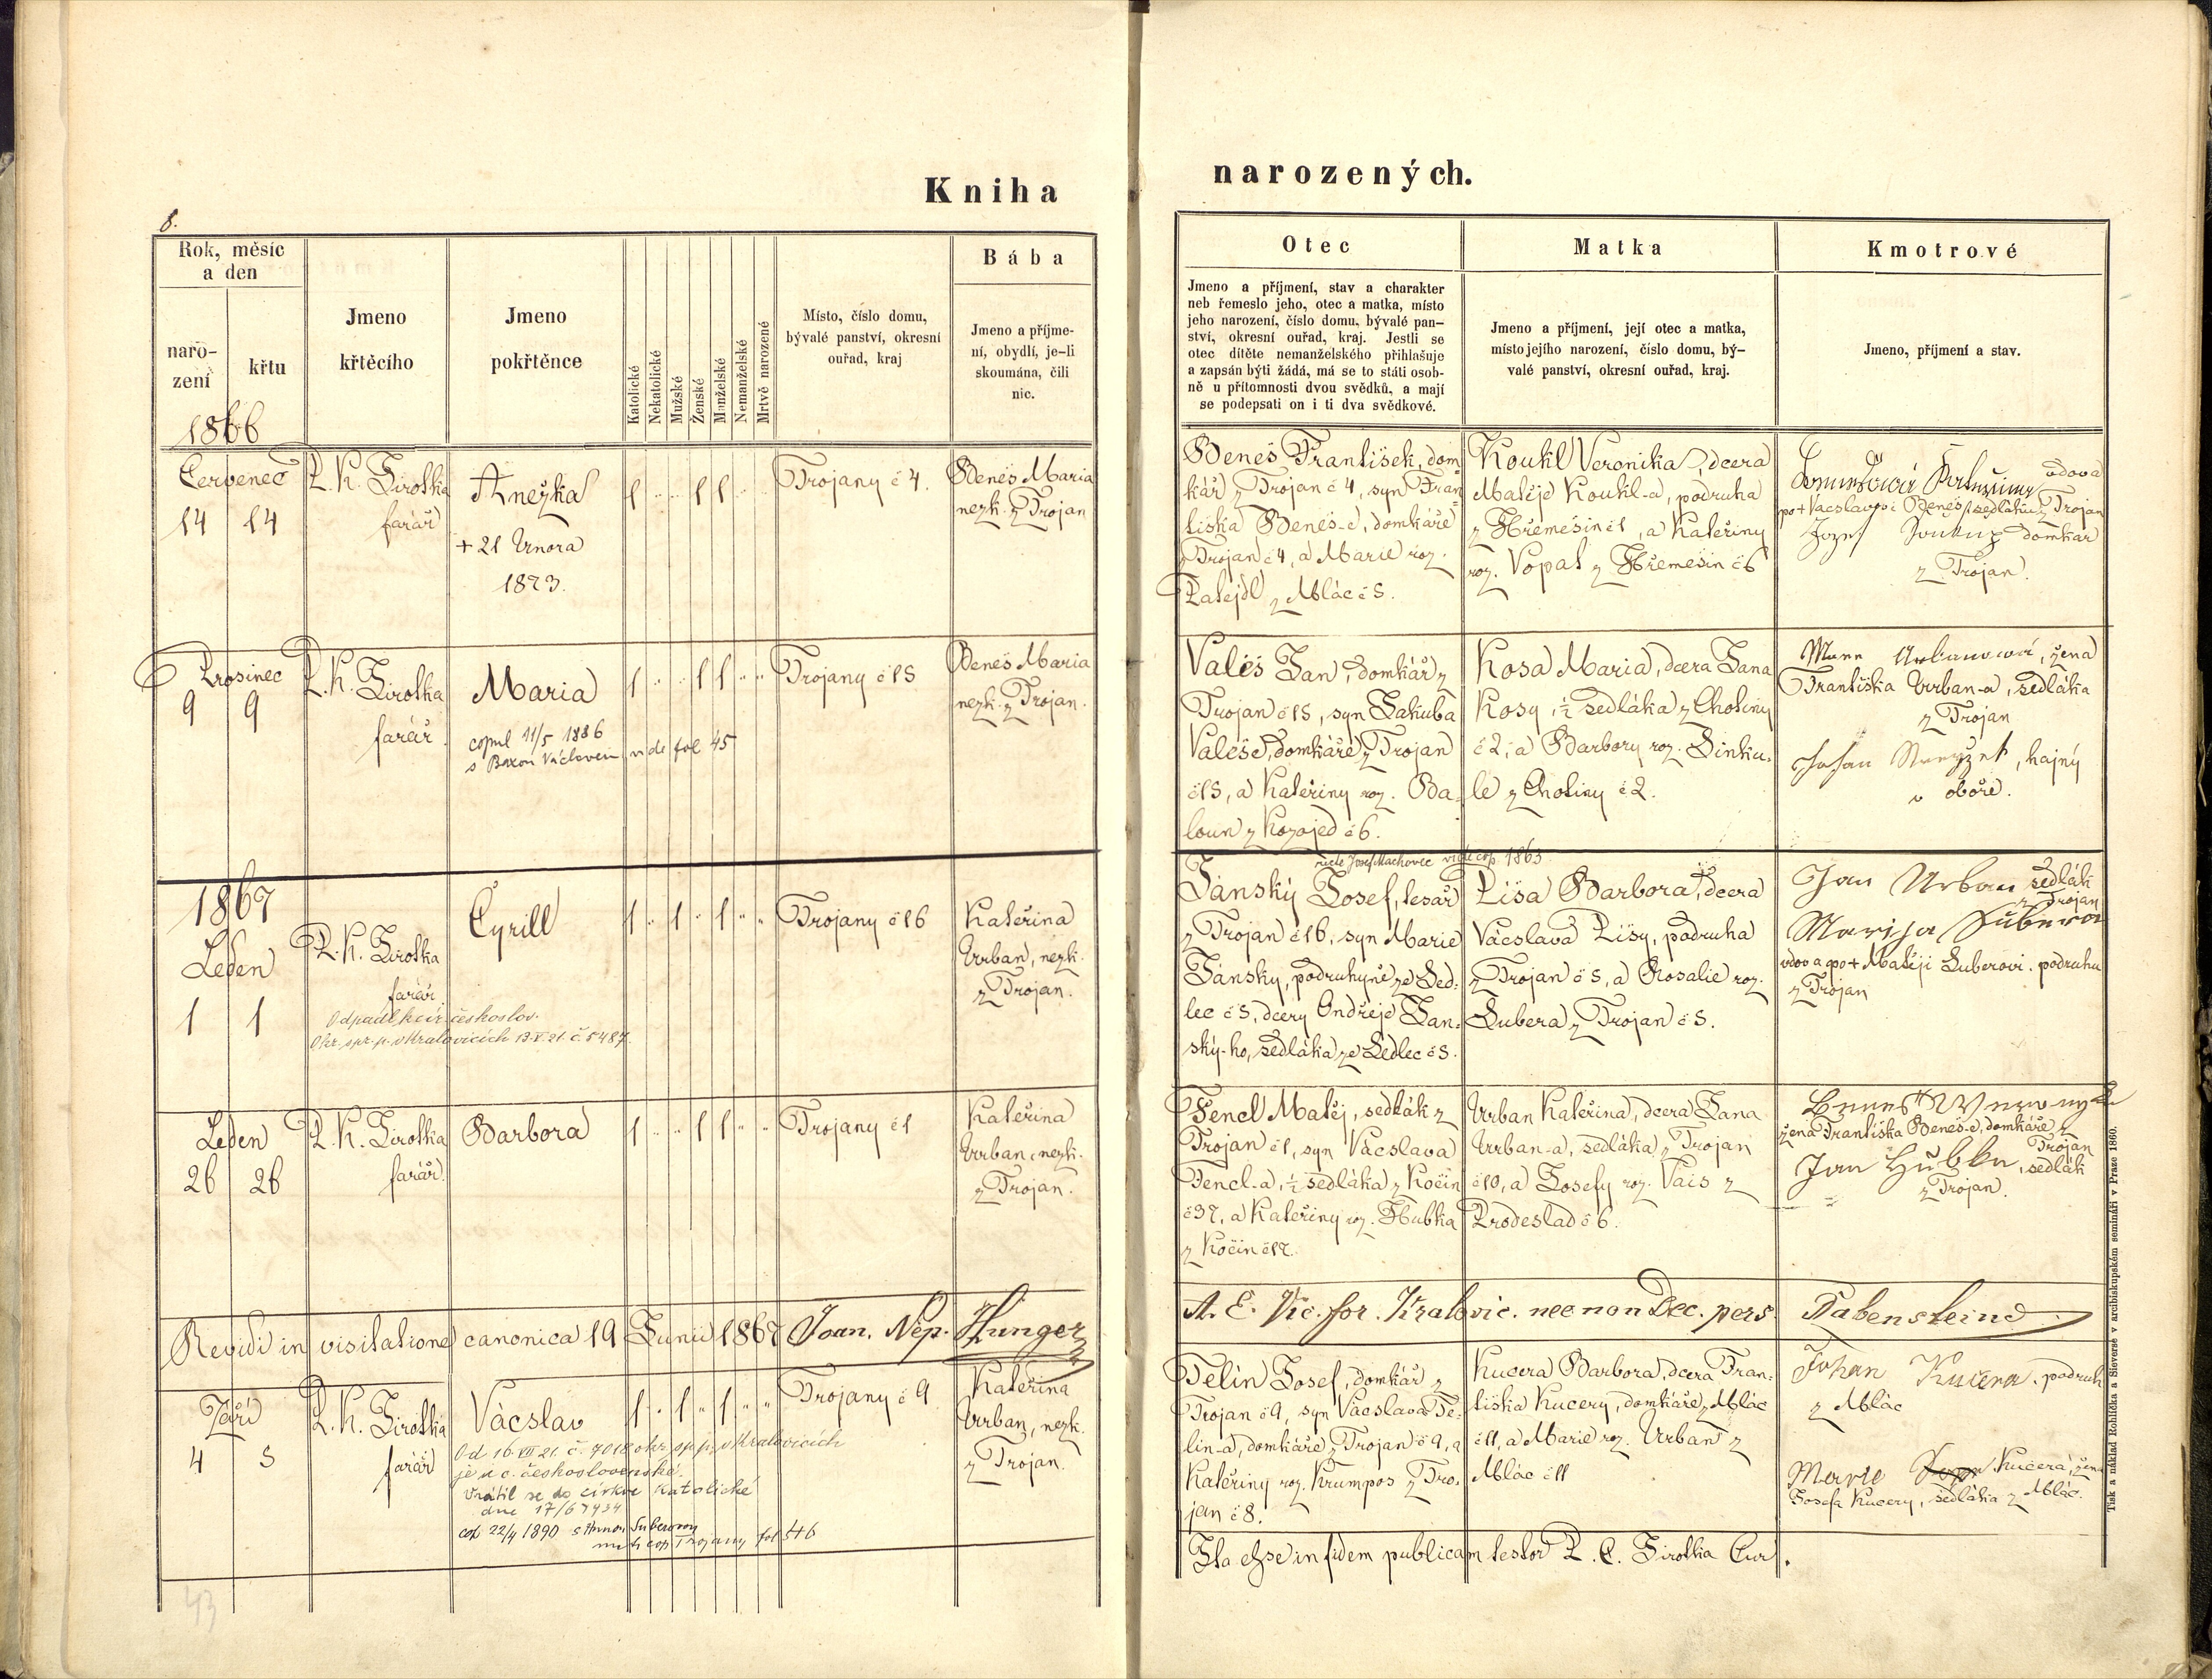 Kniha
8.
Rok, měsíc
a den
naro-
zení
křtu
1866
Jmeno
křtěcího
Jmeno
pokřtěnce
Katolické
Nekatolické
Mužské
Ženské
Manželské
Nemanželské
Mrtvě narozené
Místo, číslo domu,
bývalé panství, okresní
ouřad, kraj
Bába
Jmeno a příjme-
ní, obydlí, je-li
skoumána, čili
nic.
Červenec
14 14
P. K. Sirotka
farář
Anežka
+ 21 Února
1873.
1 " " 1 1 " "
Trojany č 4.
Beneš Maria
nezk. z Trojan
Prosinec
9 9
P. K. Sirotka
farář
Maria
copul 11/5 1886
s Václavem vide fol 45
1 " " 1 1 " "
Trojany č 15
Beneš Maria
nezk. z Trojan.
1867
Leden
1 1
P. K. Sirotka
farář.
Odpadl k cír. českoslov.
Okr. spr. p. v Kralovicích 13.V.21. č. 5487.
Cyrill
1 " 1 " 1 " "
Trojany č 16
Kateřina
Urban, nezk.
z Trojan.
Leden
26 26
P. K. Sirotka
farář
Barbora
1 " " 1 1 " "
Trojany č 1
Kateřina
Urban, nezk.
z Trojan.
Revidi in visitatione canonica 19 Junii 1867 Joan. Nep. Hunger
Září
4 5
P. K. Sirotka
farář
Václav
1 " 1 " 1 " "
Od 16.VII 21. č. 7018 okr. sp. p. v Kralovicích
je u c. československé.
Vrátil se do církve katolické
dne 17/6 1934
cop 22/4 1890 s Annou Suberovou
cop Trojany fol 546
Trojany č 9
Kateřina
Urban, nezk.
z Trojan.
43
narozených.
Otec
Jmeno a příjmení, stav a charakter
neb řemeslo jeho, otec a matka, místo
jeho narození, číslo domu, bývalé pan-
ství, okresní ouřad, kraj. Jestli se
otec dítěte nemanželského přihlašuje
a zapsán býti žádá, má se to státi osob-
ně u přítomnosti dvou svědků, a mají
se podepsati on i ti dva svědkové.
Matka
Jmeno a příjmení, její otec a matka,
místo jejího narození, číslo domu, bý-
valé panství, okresní ouřad, kraj.
Kmotrové
Jmeno, příjmení a stav.
Beneš František, dom-
kář z Trojan č 4, syn Fran-
tiska Beneš-e, domkáře
z Trojan č 4, a Marie roz.
Patejdl z Mlác č 5.
Koukl Veronika, dcera
Matěje Koukl-a, podruha
z Hřemešin č 1, a Kateřiny
roz. Vopat z Hřemešin č 6
vdova
po + Vácslavovi Beneš, sedláku z Trojan
Jozef Soukup domkář
z Trojan.
Valeš Jan, domkář z
Trojan č 15, syn Jakuba
Valeše, domkáře z Trojan
č 15, a Kateřiny roz. Ba-
loun z Kozojed č 6.
Kosa Maria, dcera Jana
Kosy, ½ sedláka z Chotiny
č 2, a Barbory roz. Sinku-
le z Chotiny č 2.
Urbanová, žena
Františka Urban-a, sedláka
z Trojan
Johan, hajný
v oboře.
recte Josef Machovec vide cop. 1863
Jánský Josef, tesař
z Trojan č 16, syn Marie
Jánsky, podruhyně ze Sed-
lec č 5, dcery Ondřeje Jan-
ský-ho, sedláka ze Sedlec č 5.
Lisa Barbora, dcera
Václava Lisy, podruha
z Trojan č 5, a Rosalie roz.
Subera z Trojan č 5.
Jan Urban sedlák
z Trojan
Marija Suberova
vdova po + Matěji Suberovi. podruhu
z Trojan
Fencl Matěj, sedlák z
Trojan č 1, syn Vácslava
Fencl-a, ½ sedláka z Kočin
č 37, a Kateřiny roz. Hubka
z Kočin č 17.
Urban Kateřina, dcera Jana
Urban-a, sedláka z Trojan
č 10, a Josefy roz. Vais z
Brodeslad č 6.
Beneš
žena Františka Beneš-e, domkáře z
Trojan
Jan Hubka, sedlák
z Trojan.
A. E. Vic. for. Kralovic. nec non Dec. pers. Rabensteine
Telín Josef, domkář z
Trojan č 9, syn Vácslava Te-
lín-a, domkáře z Trojan č 9, a
Kateřiny roz. Krumpos z Tro-
jan č 8.
Kucera Barbora, dcera Fran-
tiska Kucery, domkáře z Mlác
č 11, a Marie roz. Urban z
Mlác č 11
Johan Kučera, podruh
z Mlác
Marie Kučera, žena
Josefa Kucery, sedláka z Mlác.
Ita esse in fidem publicam testor P. C. Sirotka Cur.
Tisk a náklad Rohlíčka a Sieverse v arcibiskupském semináři v Praze 1860.